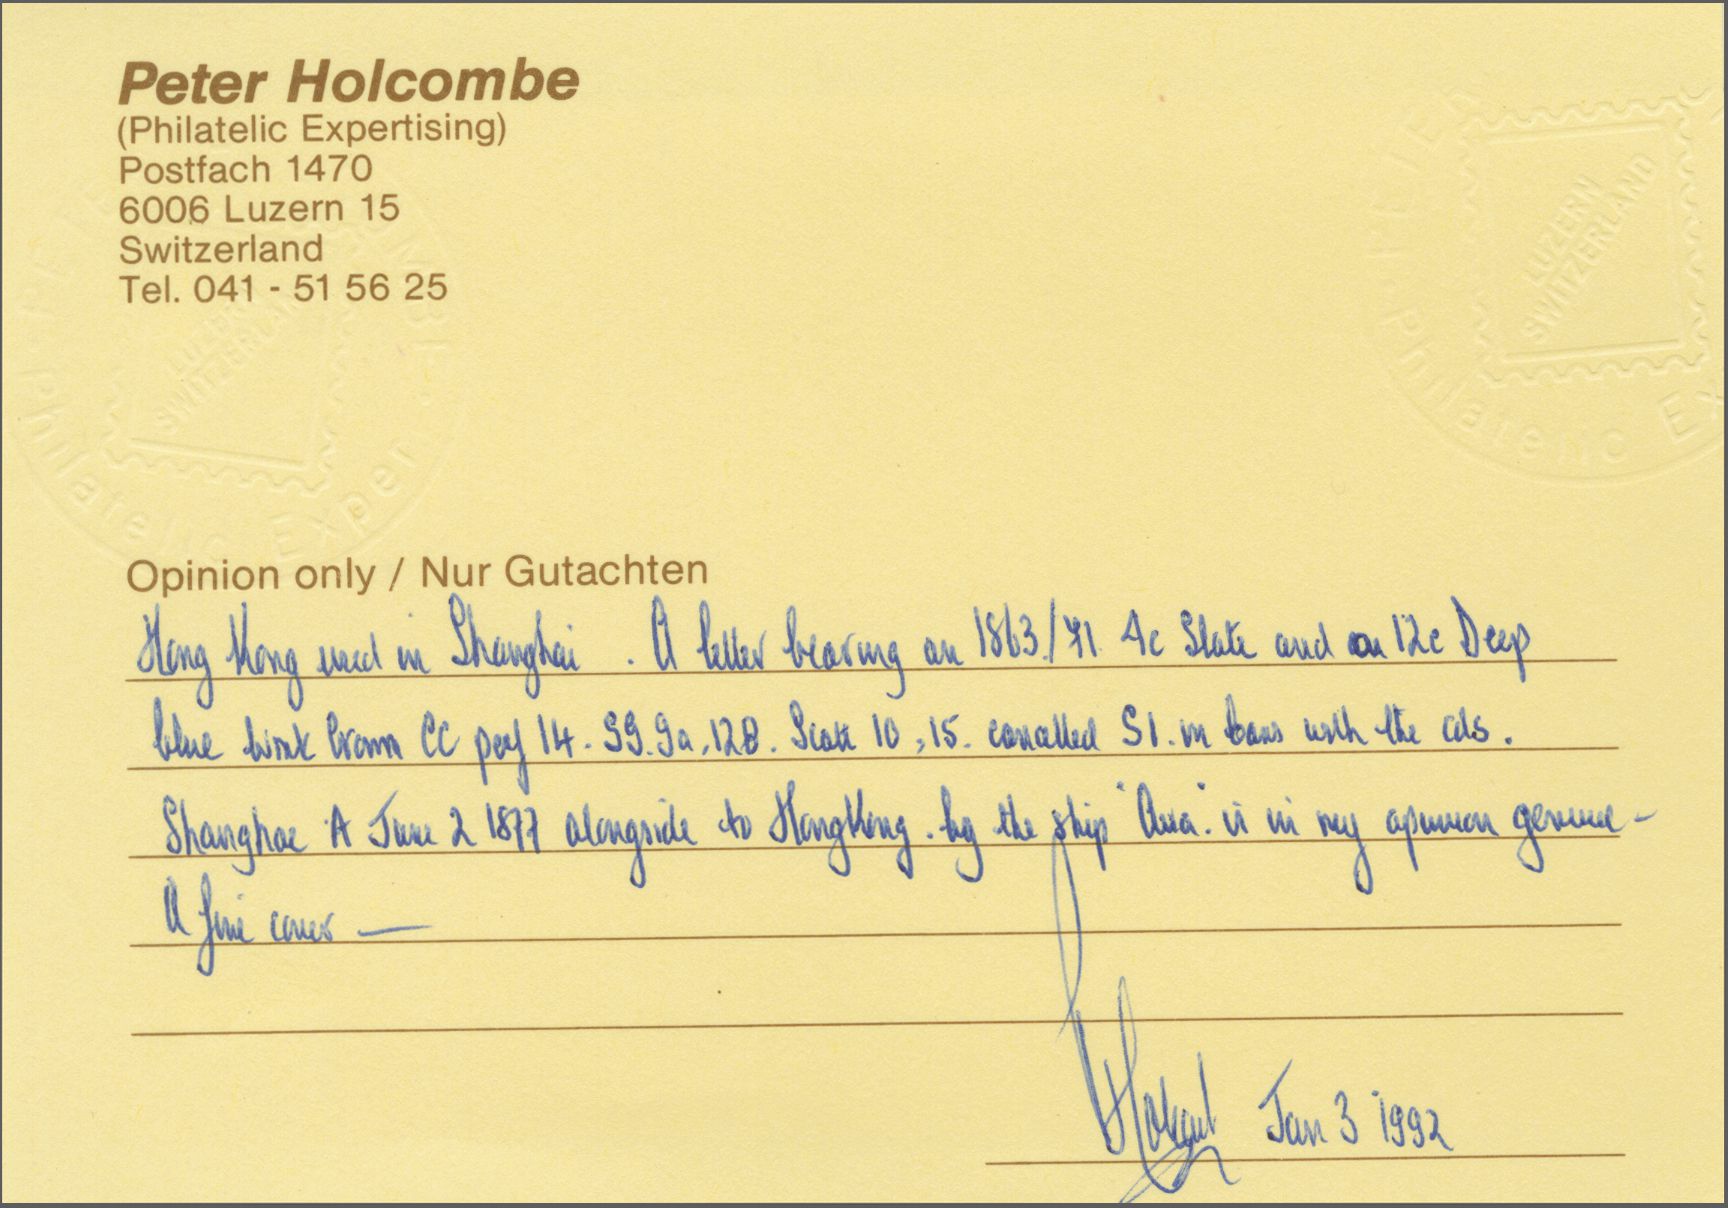 Peter Holcombe
(Philatelic Expertising)
Postfach 1470
6006 Luzern 15
Switzerland
Tel. 041 - 51 56 25
LUZERN
SWITZERLAND
Philatelic Exper
LUZERN
SWITZERLAND
Philatelic Ex
Opinion only / Nur Gutachten
Hong Kong used in Shanghai . A letter bearing an 1863/71 4c Slate and an 12c Deep
blue wmk Crown CC perf 14. SG. 9a, 12B. Scott 10, 15. cancelled S1. in bars with the cds.
Shanghae A June 2 1877 alongside to HongKong. by the ship is in my opinion genuine -
A fine cover —
Jan 3 1992